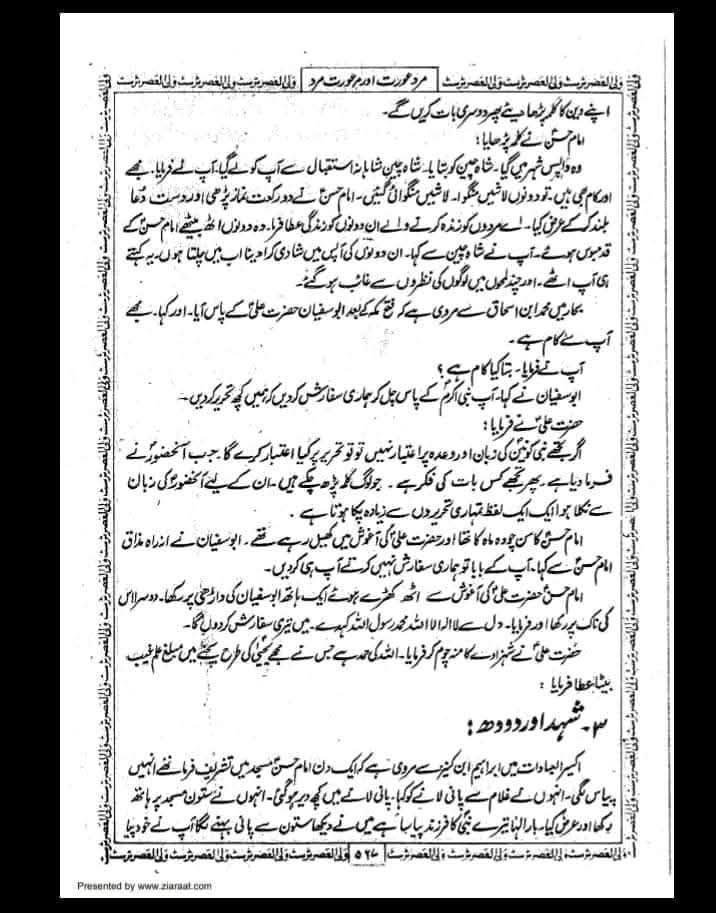 ولی العصر ٹرسٹ ولی العصر ٹرسٹ ولی العصر ٹرسٹ مرد عورت اور عورت مرد ولی العصر ٹرسٹ ولی العصر ٹرسٹ ولی العصر ٹرسٹ
اپنے دین کا کلمہ پڑھا دیجئے پھر دوسری بات کریں گے۔
امام حسنؑ نے کلمہ پڑھایا:
وہ واپس شہر میں گیا۔ شاہ چین کو بتایا۔ شاہ چین شاہانہ استقبال سے آپ کو لے گیا۔ آپ نے فرمایا۔ مجھے
اور کام بھی ہیں۔ تو دونوں لاشیں منگوا۔ لاشیں منگوائی گئیں۔ امام حسنؑ نے دو رکعت نماز پڑھی اور دست دعا
بلند کر کے عرض کیا۔ اے مردوں کو زندہ کرنے والے ان دونوں کو زندگی عطا فرما۔ وہ دونوں اٹھ بیٹھے امام حسنؑ کے
قدمبوس ہوئے۔ آپ نے شاہ چین سے کہا۔ ان دونوں کی آپس میں شادی کرا دینا اب میں چلتا ہوں۔ یہ کہتے
ہی آپ اٹھے۔ اور چند لمحوں میں لوگوں کی نظروں سے غائب ہو گئے۔
بحار میں محمد ابن اسحاق سے مروی ہے کہ فتح مکہ کے بعد ابوسفیان حضرت علیؑ کے پاس آیا۔ اور کہا۔ مجھے
آپ سے کام ہے۔
آپ نے فرمایا۔ بتا کیا کام ہے؟
ابوسفیان نے کہا۔ آپ نبی اکرمؐ کے پاس چل کر ہماری سفارش کر دیں کہ ہمیں کچھ تحریر کر دیں۔
حضرت علیؑ نے فرمایا:
اگر تجھے نبی کونینؐ کی زبان اور وعدہ پر اعتبار نہیں تو تو تحریر پر کیا اعتبار کرے گا۔ جب آنحضورؐ نے
فرما دیا ہے۔ پھر تجھے کس بات کی فکر ہے۔ جو لوگ کلمہ پڑھ چکے ہیں۔ ان کے لیے آنحضورؐ کی زبان
سے نکلا ہوا ایک ایک لفظ تمہاری تحریروں سے زیادہ پکا ہوتا ہے۔
امام حسنؑ کا سن چودہ ماہ کا تھا اور حضرت علیؑ کی آغوش میں کھیل رہے تھے۔ ابوسفیان نے ازراہ مذاق
امام حسنؑ سے کہا۔ آپ کے بابا تو ہماری سفارش نہیں کرتے آپ ہی کر دیں۔
امام حسنؑ حضرت علیؑ کی آغوش سے اٹھ کھڑے ہوئے ایک ہاتھ ابوسفیان کی داڑھی پر رکھا۔ دوسرا اس
کی ناک پر رکھا اور فرمایا۔ دل سے لا الہ الا اللہ محمد رسول اللہ کہدے۔ میں تیری سفارش کر دوں گا۔
حضرت علیؑ نے شہزادے کا منہ چوم کر فرمایا۔ اللہ کی حمد ہے جس نے مجھے یحییٰؑ کی طرح بچپنے میں مبلغ علم غیب
بیٹا عطا فرمایا:
۳۔ شہد اور دودھ:
اکسیر العبادات میں ابراہیم ابن کثیر سے مروی ہے کہ ایک دن امام حسنؑ مسجد میں تشریف فرما تھے انہیں
پیاس لگی۔ انہوں نے غلام سے پانی لانے کو کہا۔ پانی لانے میں کچھ دیر ہو گئی۔ انہوں نے ستون مسجد پر ہاتھ
رکھا اور عرض کیا۔ بار الٰہا تیرے نبیؐ کا فرزند پیاسا ہے میں نے دیکھا ستون سے پانی بہنے لگا آپ نے خود پیا
ولی العصر ٹرسٹ ولی العصر ٹرسٹ ولی العصر ٹرسٹ ۵۲۷ ولی العصر ٹرسٹ ولی العصر ٹرسٹ ولی العصر ٹرسٹ
Presented by www.ziaraat.com